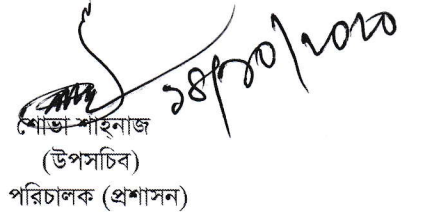 ১৪/১০/২০২০
শোভা শাহনাজ
(উপসচিব)
পরিচালক (প্রশাসন)